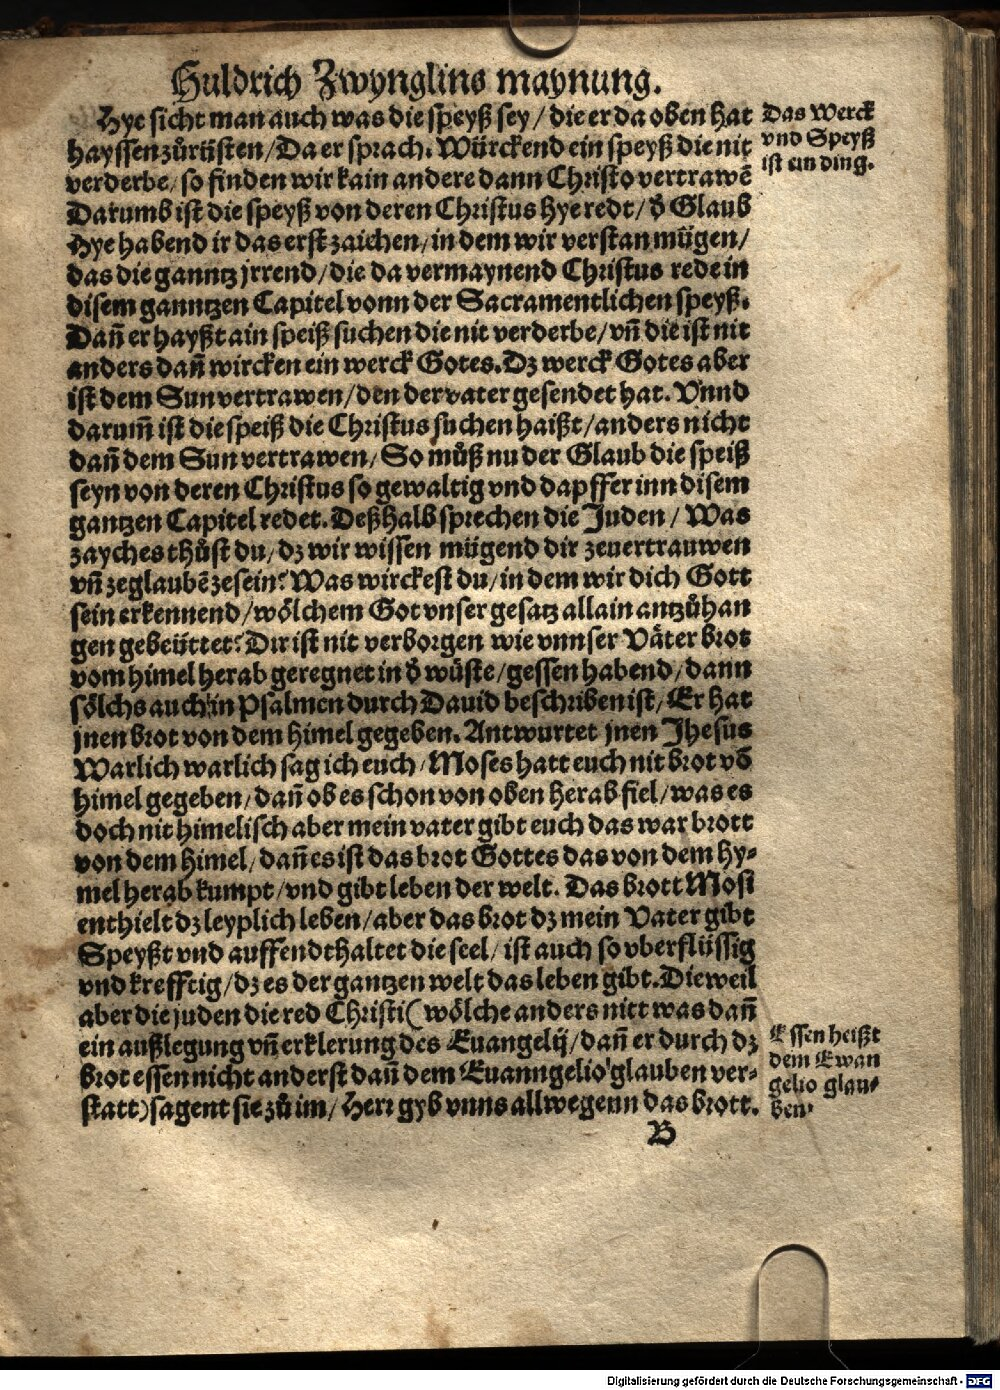 Huldrich Zwynglins maynung.
Hye sicht man auch was die speyß sey / die er da oben hat
hayssen zůrüsten / Da er sprach. Würckend ein speyß die nit
verderbe / so finden wir kain andere dann Christo vertrawē
Darumb ist die speyß von deren Christus hye redt / d̄ Glaub
Hye habend ir das erst zaichen / in dem wir verstan mügen /
das die ganntz jrrend / die da vermaynend Christus rede in
disem ganntzen Capitel vonn der Sacramentlichen speyß.
Dañ er hayßt ain speiß suchen die nit verderbe / vñ die ist nit
anders dañ wircken ein werck Gotes. Dz werck Gotes aber
ist dem Sun vertrawen / den der vater gesendet hat. Vnnd
darum̄ ist die speiß die Christus suchen haißt / anders nicht
dañ dem Sun vertrawen / So můß nu der Glaub die speiß
seyn von deren Christus so gewaltig vnd dapffer inn disem
gantzen Capitel redet. Deßhalb sprechen die Juden / Was
zayches thůst du / dz wir wissen mügend dir zeuertrauwen
vñ zeglaubē ze sein? Was wirckest du / in dem wir dich Gott
sein erkennend / wölchem Got vnser gesatz allain antzůhan
gen gebeüttet? Dir ist nit verborgen wie vnnser Väter brot
vom himel herab geregnet in d̄ wüste / gessen habend / dann
sölchs auch in Psalmen durch Dauid beschriben ist / Er hat
jnen brot von dem himel gegeben. Antwurtet jnen Jhesus
Warlich warlich sag ich euch / Moses hatt euch nit brot vō
himel gegeben / dañ ob es schon von oben herab fiel / was es
doch nit himelisch aber mein vater gibt euch das war brott
von dem himel / dañ es ist das brot Gottes das von dem hy-
mel herab kumpt / vnd gibt leben der welt. Das brott Mosi
enthielt dz leyplich leben / aber das brot dz mein Vater gibt
Speyßt vnd auffendthaltet die seel / ist auch so vberflüssig
vnd krefftig / dz es der gantzen welt das leben gibt. Die weil
aber die juden die red Christi ( wölche anders nitt was dañ
ein außlegung vñ erklerung des Euangelij / dañ er durch dz
brot essen nicht anderst dañ dem Euanngelio glauben ver-
statt) sagent sie zů im / Herr gyb vnns allwegenn das brott.
B
Das Werck
vnd Speyß
ist ein ding.
Essen heißt
dem Ewan
gelio glau-
ben.
Digitalisierung gefördert durch die Deutsche Forschungsgemeinschaft - DFG